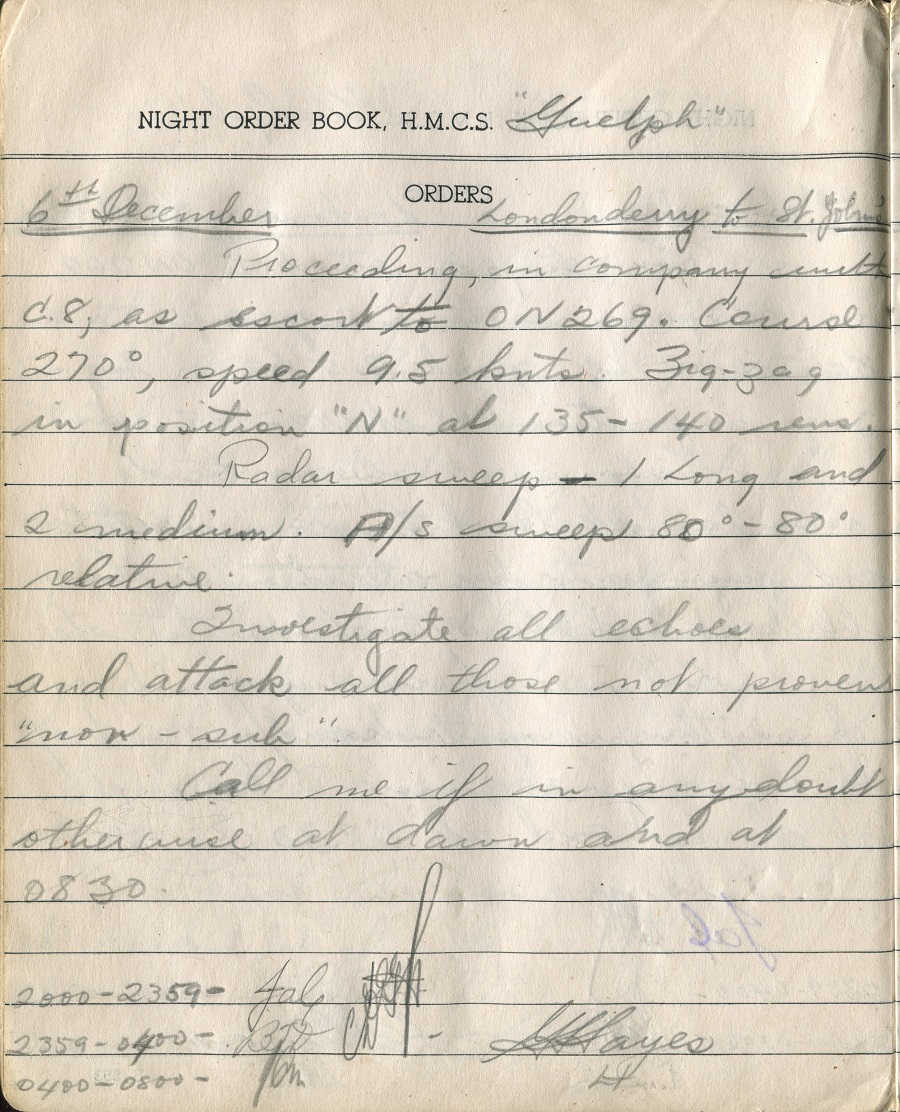 NIGHT ORDER BOOK, H.M.C.S. "Guelph"
ORDERS
6th December Londonderry to St. John's
Proceeding, in company with
C.8, as escort to ON 269. Course
270°, speed 9.5 knts. Zig-zag
in position "N" at 135-140 revs.
Radar sweep - 1 Long and
2 medium. A/s sweep 80°-80°
relative.
Investigate all echoes
and attack all those not proven
"non-sub".
Call me if in any doubt
otherwise at dawn and at
0830.
2000-2359-
2359-0400- Hayes
0400-0800- Lt